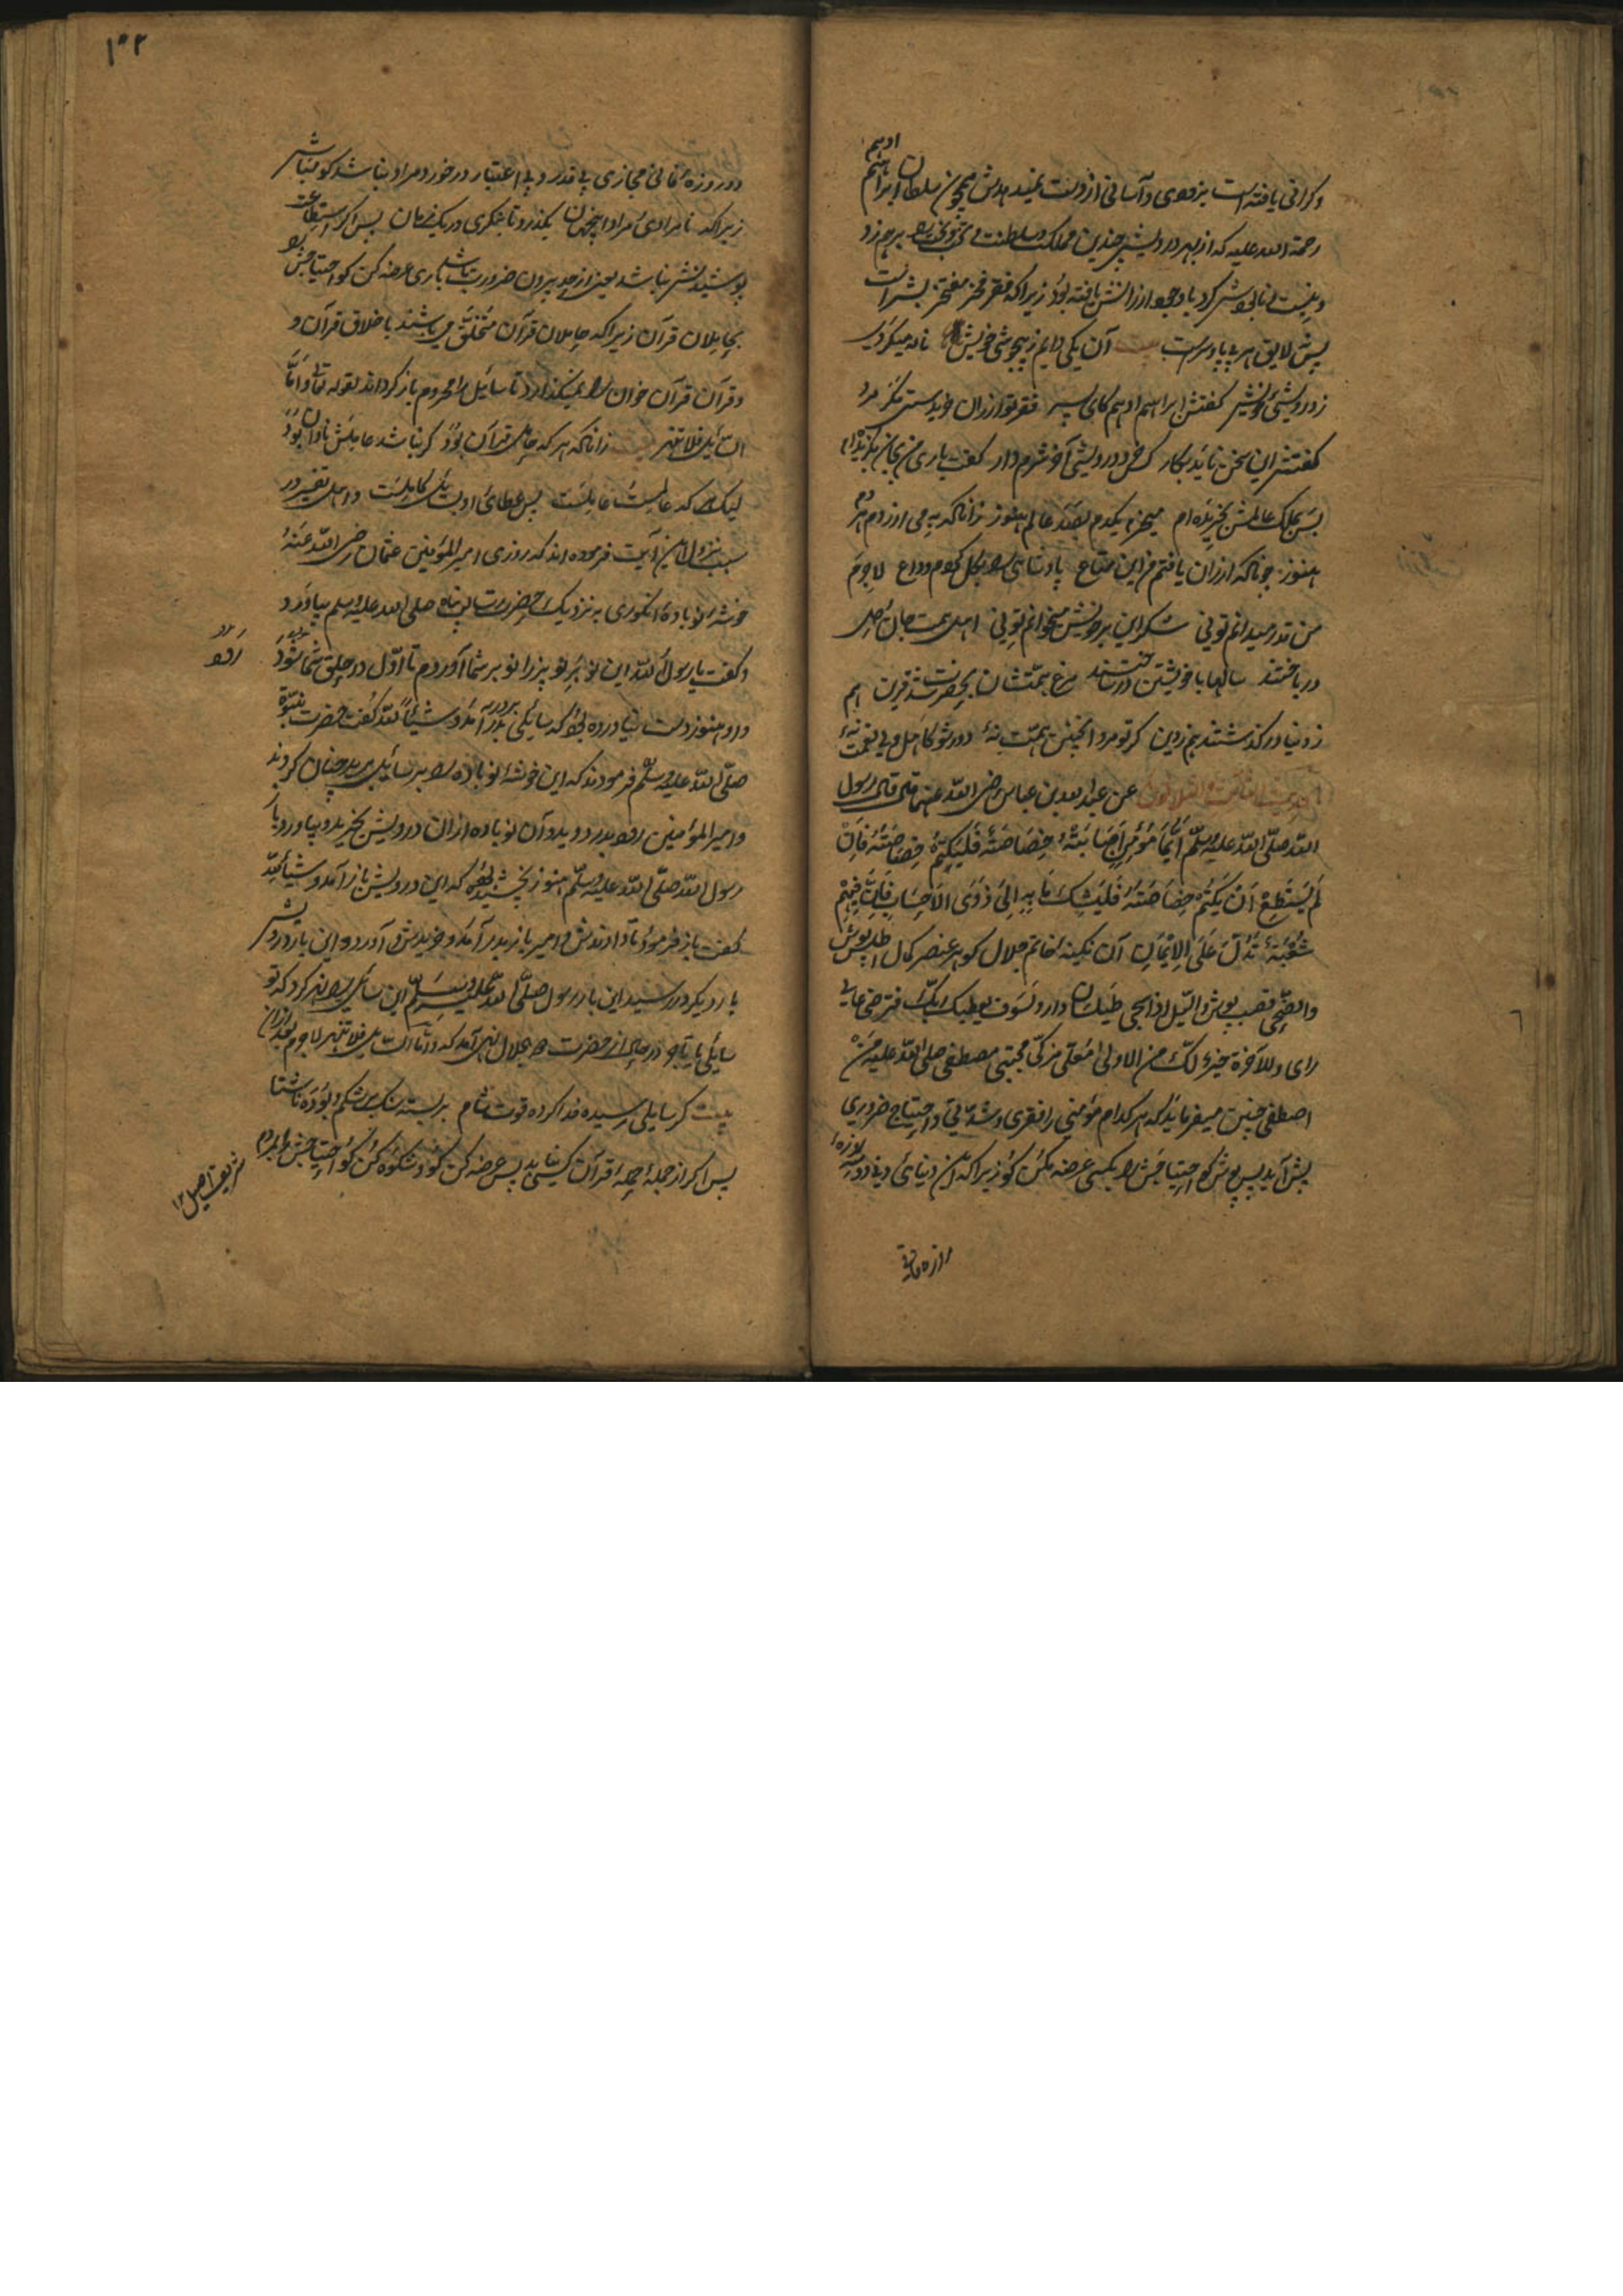 ادهم
و گرانی یافته است بزودی و آسانی از دست ندهدش همچون سلطان ابراهیم
رحمة الله علیه که از بهر درویشی چندین مملکت و سلطنت و تخت و بخت را برهم زد
و نیست نابود کرد با وجود ارزانش یافته بود زیرا که فقر فخر مفتخر بشر است
پیش لایق هر بی پا و سر است بیت آن یکی دایم ز بیخویشی خویش ناله میکردی
ز درویشی خویش گفتش ابراهیم ادهم کای پسر فقر تو ارزان خریدستی مگر مرد
گفتش این سخن ناید بکار کس خرد درویشی آخر شرم دار گفت باری من بجان بگزیده ام
پس بملک عالمش بخریده ام میخرم یکدم بصد عالم هنوز زانکه به می ارزدم هر دم
هنوز چونکه ارزان یافتم من این متاع پادشاهی را بکل کردم وداع لاجرم
من قدر میدانم تونی شکر این بر خویش میخوانم تونی اهل همت جان و دل
درباختند سالها با سوختن درساختند مرغ همتشان بحضرت شد قرین هم
ز دنیا درگذشتند هم ز دین گر تو مرد اینچنین همت نهٔ دور شو کاهل ولی نعمت نهٔ
الحدیث الثامن والثلاثون عن عبد الله بن عباس رضی الله عنهما قال قال رسول
الله صلی الله علیه وسلم ایما مؤمن اصابته خصاصة فلیکتم خصاصته فان
لم یستطع ان یکتم خصاصته فلیشک ما به الی ذوی الاحساب فان فیهم
شعبة تدل علی الایمان آن نگینهٔ خاتم جلال گوهر عنصر کمال اطلس پوش
والضحی قصب پوش واللیل اذا سجی ولسوف یعطیک ربک فترضی
رای وللآخرة خیر لک من الاولی اعنی مزکی مجتبی مصطفی صلی الله علیه من
اصطفی چنین میفرماید که هر کدام مؤمنی را فقری و شدتی و احتیاج ضروری
پیش آید پس بپوش کو احتیاجش را بکسی عرضه مکن کو زیرا که این دنیای دنی دو سه روزهٔ
۱۰۲
دو روزهٔ فانی مجازی بی قدر و بی اعتبار در خورد مراد نباشد کو مباش
زیرا که نامرادی و مراد این جهان بگذرد تا بنگری در یک زمان پس اگر استطاعت
پوشیدنش نباشد یعنی از حد بیرون ضرورت باشد باری عرضه کن کو احتیاجش را
بحاملان قرآن زیرا که حاملان قرآن متخلق می باشند باخلاق قرآن و
و قرآن قرآن خوان را نمیگذارد تا سایل را محروم باز گرداند لقوله تعالی و اما
السائل فلا تنهر بیت زانکه هر که حامل قرآن بود گر نباشد عاملش نادان بود
لیک هر که عالمست عاملست پس عطای او بسایل کاملست و اهل تفسیر در
سبب نزول این آیت فرموده اند که روزی امیر المؤمنین عثمان رضی الله عنه
خوشهٔ نوبادهٔ انگوری به نزدیک حضرت رسالت پناه صلی الله علیه وسلم بیاورد
و گفت یا رسول الله این نوبر نو پز را نو بر شما آوردم تا اول در حلق شما شود
و او هنوز دست نیاورده بود که سایلی بدر آمد و شیئا لله گفت حضرت نبوة
صلی الله علیه وسلم فرمودند که این خوشهٔ نوباده را بر سایل برید چنان کردند
و امیر المؤمنین بدر دوید و آن نوباده از آن درویش بخرید و بیاورد باز
رسول الله صلی الله علیه وسلم هنوز نچشیده بود که این درویش باز آمد و شیئا لله
گفت باز فرمود تا دادندش و امیر باز بدر آمد و خریدش و آورد این بار درویش
بار دیگر در رسید این بار رسول صلی الله علیه وسلم این سایل را نهر کرد که تو
سایلی یا تاجر در حال از حضرت جلال نهی آمد که و اما السائل فلا تنهر لاجرم بعد ازان
بیت گر سایلی رسیده فدا کرده قوت شام بر بسته سنگ بر شکم و بوده ناشتا
پس اگر از جملهٔ حملهٔ قرآن کسی نیابد پس عرضه کن کو و شکوه کن کو احتیاجش را بمردم
شریف اصیل ۱۲